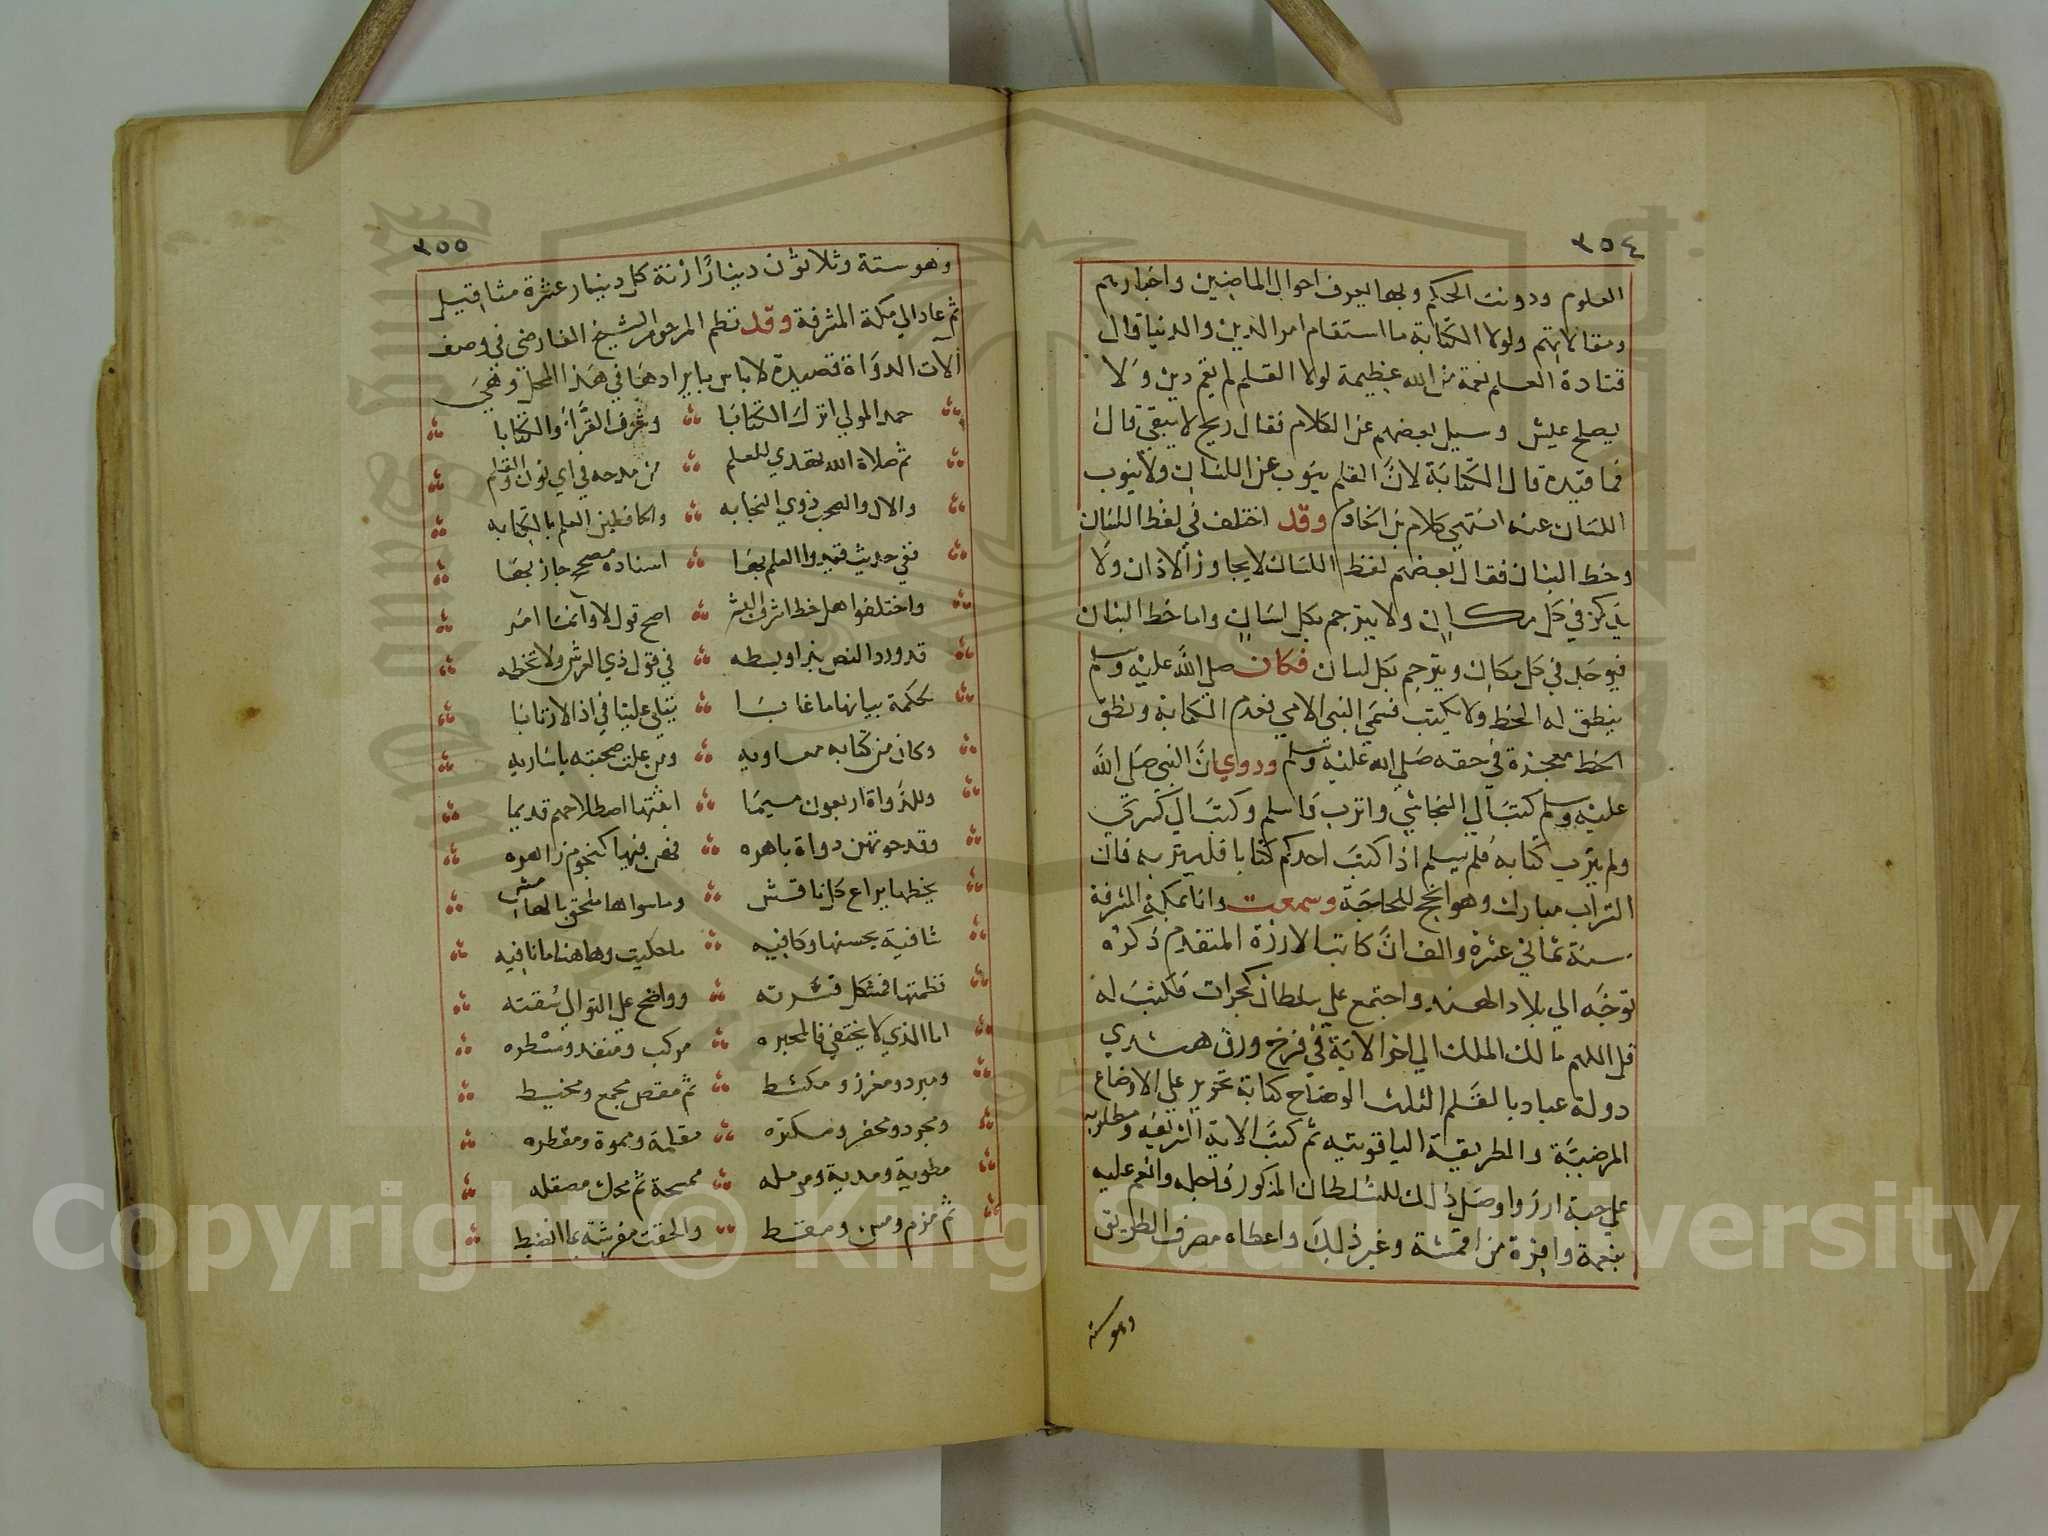 ٣٥٤
العلوم ودونت الحكم وبها يعرف احوال الماضين واخبارهم
ومقالاتهم ولولا الكتابة ما استقام امر الدين والدنيا وقال
قتادة العلم نعمة من الله عظيمة لولا القلم لم يقم دين ولا
يصلح عيش وسيل بعضهم عن الكلام فقال ريح لا يبقى قال
فما قيده قال الكتابة لان القلم ينوب عن اللسان ولا ينوب
اللسان عنه انتهى كلام وقد اختلف في لفظ اللسان
وخط البنان فقال بعضهم لفظ اللسان لا يجاوز الاذان ولا
في كل مكان ولا يترجم بكل لسان واما خط البنان
فيوجد في كل مكان ويترجم بكل لسان فكان صلى الله عليه وسلم
ينطق له الخط ولا يكتب فسمي النبي الامي فعدم الكتابة ونطق
الخط معجزة في حقه صلى الله عليه وسلم وروي ان النبي صلى الله
عليه وسلم كتب الى النجاشي واترب فاسلم وكتب الى كسرى
ولم يترب كتابه فلم يسلم اذا كتب احدكم كتابا فليتربه فان
التراب مبارك وهو انجح للحاجة وسمعت وانا بمكة المشرفة
سنة ثماني عشرة والف ان كاتب الارزة المتقدم ذكره
توجه الى بلاد الهند واجتمع على سلطان كجرات فكتب له
قل اللهم مالك الملك الى اخر الاية في فرخ ورق هندي
دولة عباد بالقلم الثلث الوضاح كتابة تحرير على الاوضاع
المرضية والطريقة الياقوتيه ثم كتب الاية الشريفة
على حبة ارز واوصل ذلك للسلطان المذكور فاجله وانعم عليه
بنعمة وافرة من اقمشة وغير ذلك واعطاه مصرف الطريق
وهو ستة
٣٥٥
وهو ستة وثلاثون دينارا زنة كل دينار عشرة مثاقيل
ثم عاد الى مكة المشرفة وقد نظم المرحوم الشيخ الفارضي في وصف
آلات الدواة قصيدة لا باس بايرادها في هذا المحل وهي
حمدا لمولى انزل الكتابا وشرف القراء والكتابا
ثم صلاة الله تهدي للعلم من مدحه في اي نون والقلم
والال والصحب ذوي النجابه والحافظين العلم بالكتابه
ففي حديث قيدوا العلم بها اسناده صحح جاز بها
واختلفوا هل خط اشرف البشر اصح قول لا وانما امر
قد ورد النص بنراو بسطه في قول ذي العرش ولا تخطه
لحكمة بيانها ما غابا يتلى علينا في اذا لارتابا
وكان من كتابه معاويه ومن علت صحبته يا ساريه
وللدواة اربعون ميما اثبتها اصطلاحهم قديما
وقد حوتهن دواة باهره فهن فيها كنجوم زاهره
يخطها يراع كانا قش وما سواها ملحق بالهامش
شافية بحسنها وكافيه ما حكيت وها هنا ما نافيه
نظمتها فمشكل فسرته وواضح على التوالي سقته
اما الذي لا يختفي فالمحبره مركب ومنفد ومسطره
ومبرد ومغرز ومكشط ثم مقص مجمع ومخيط
ومجرد ومحفر ومسكتره مقلمة ومموة ومقطره
مطوية ومدية ومرمله ممسحة ثم محك مصقله
ثم مزم ومسن ومقط والحقت مفرشة بما انضبط
Copyright © King Saud University